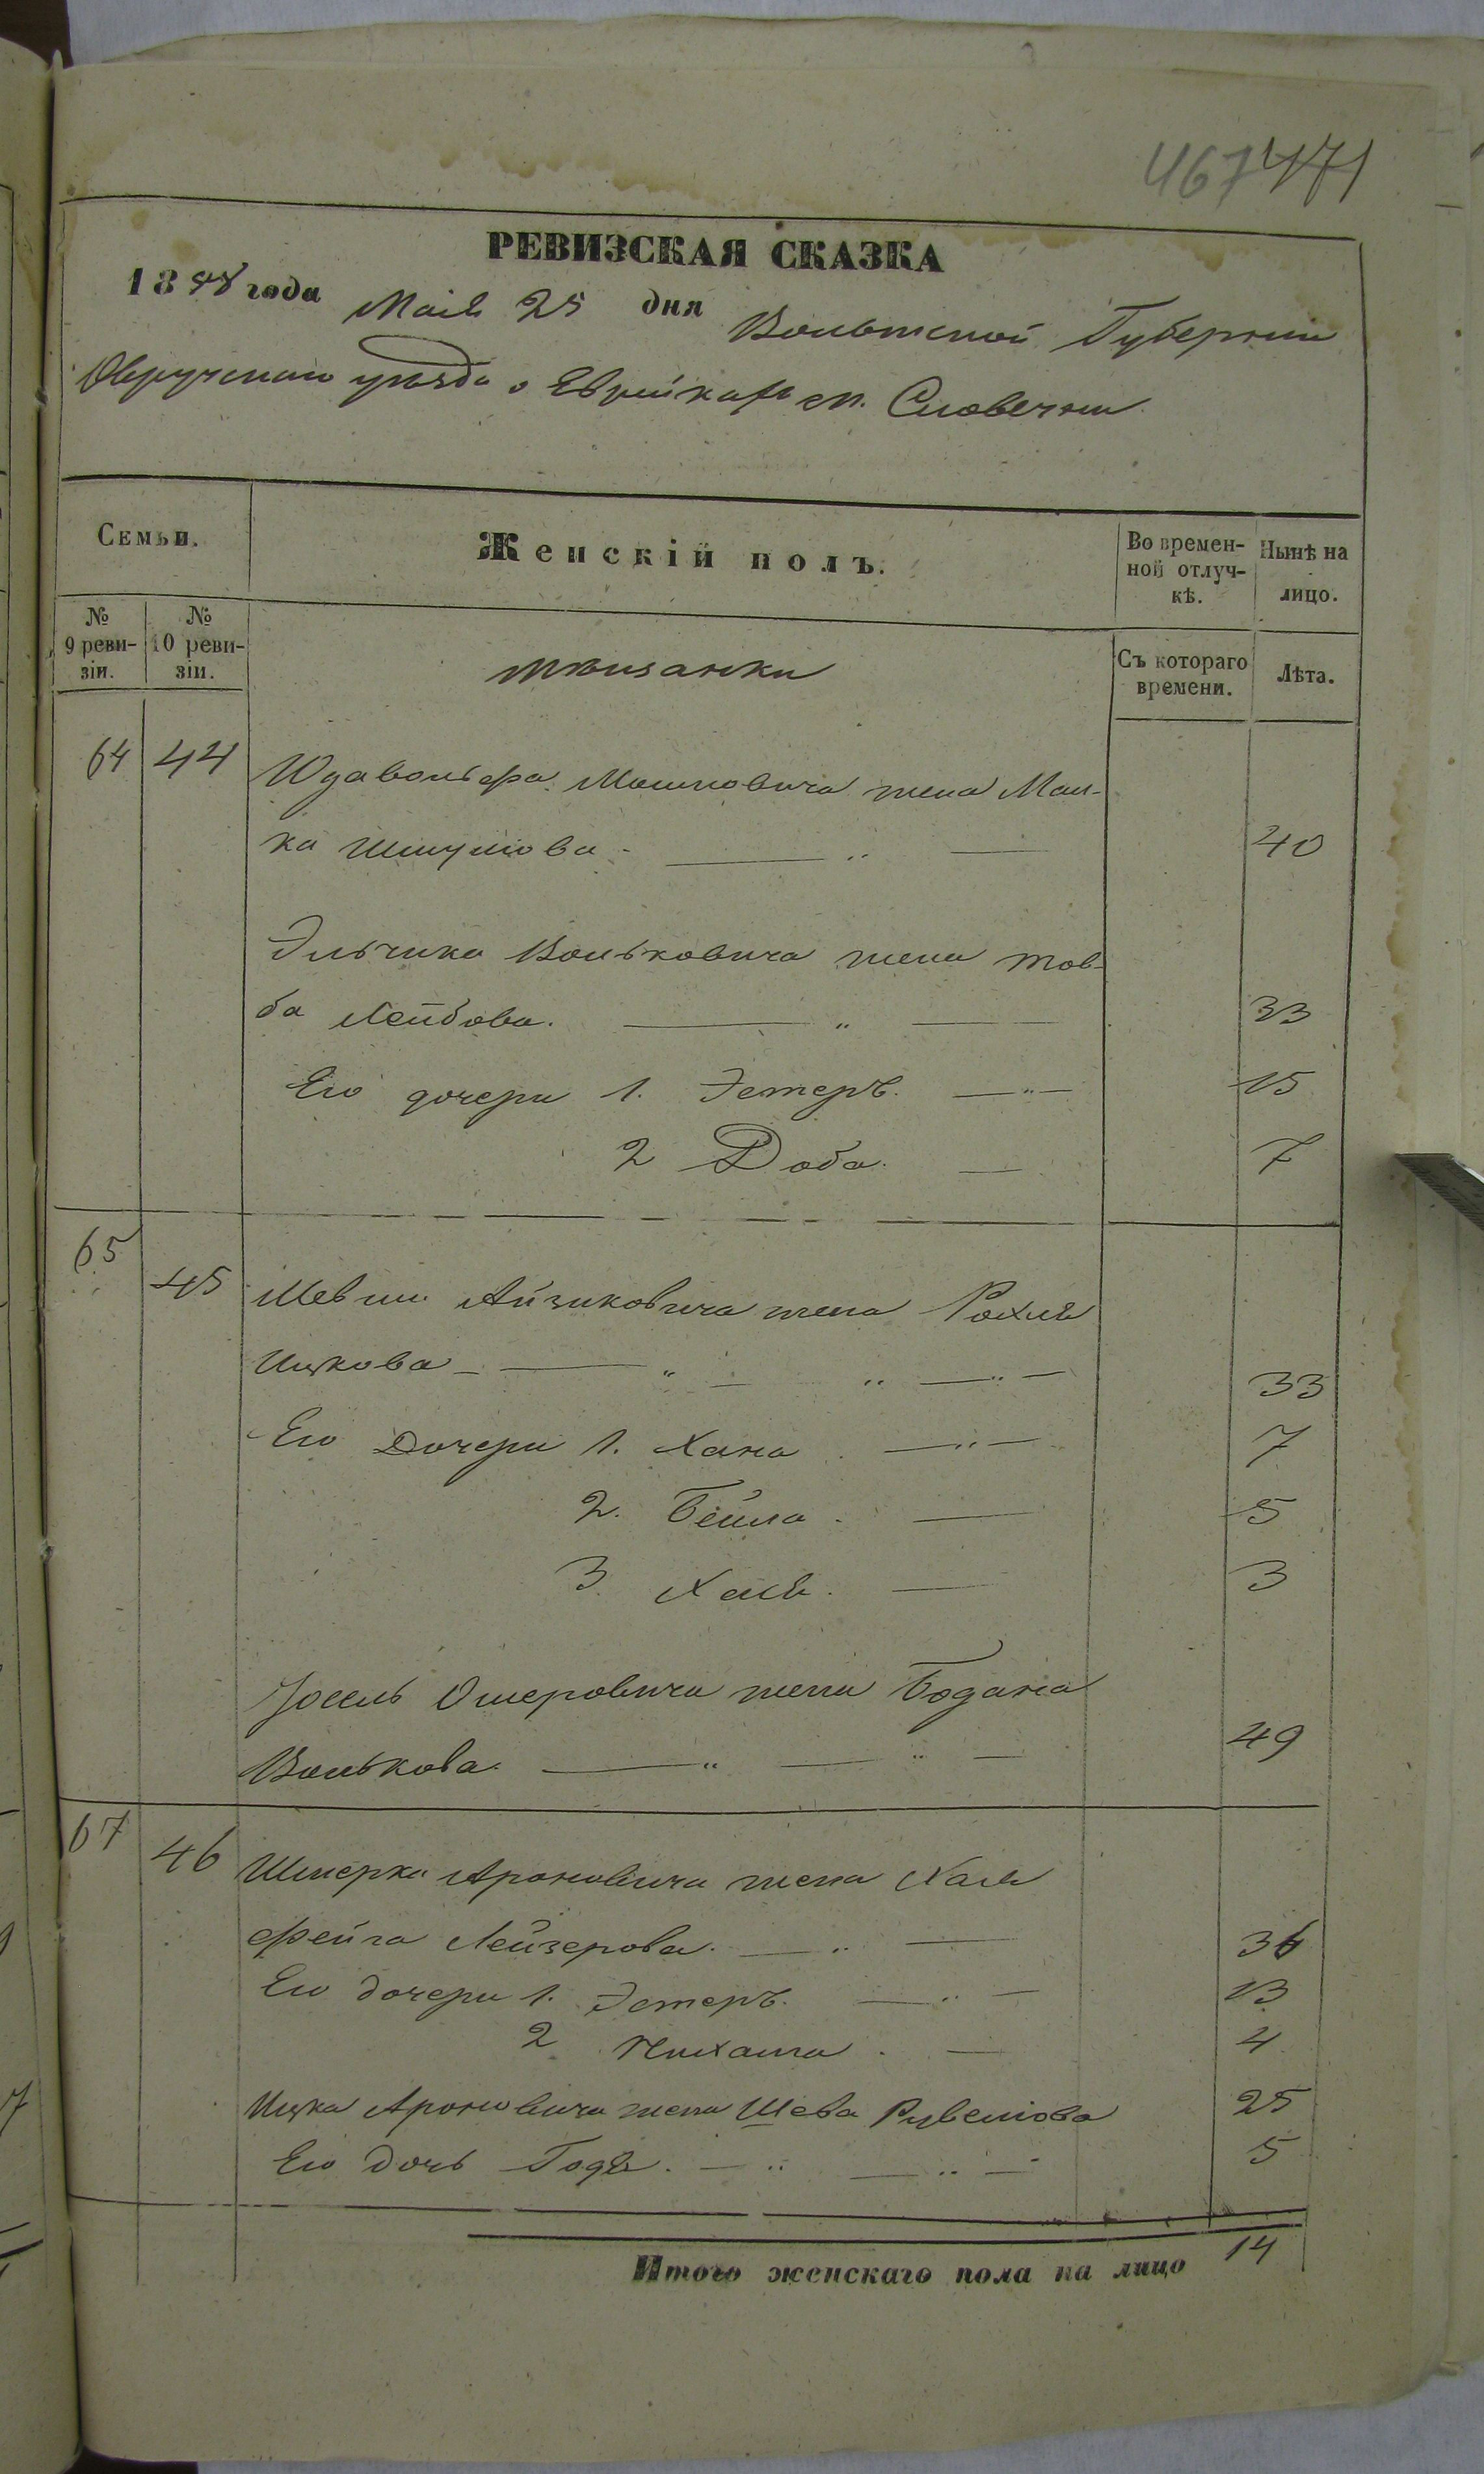 467 471
РЕВИЗСКАЯ СКАЗКА
1858 года Маія 25 дня Волынской Губерніи
Овручскаго уѣзда о Еврейкахъ м. Словечны
Семьи.
Женскій полъ.
Во времен-
ной отлуч-
кѣ.
Нынѣ на
лицо.
№
9 реви-
зіи.
№
10 реви-
зіи.
мѣщанки
Съ котораго
времени.
Лѣта.
64 44 Юдавольфа Мошковича жена Мал-
ка Шмулова 40
Эльчика Вольковича жена Тов-
ба Лейбова. 33
Его дочери 1. Эстеръ. 15
2 Доба. 7
65
45 Айзиковича жена Рохля
Ицкова 33
Его Дочери 1. Хана 7
2. Бейла 5
3 Хая. 3
Іосель Ошеровича жена Богдана
Волькова. 49
67
46 Шмерка Ароновича жена Хая
Фейга Лейзерова. 36
Его дочери 1. Эстеръ. 13
2 4
Ицка Ароновича жена Шева Рувелиова 25
Его дочь Годя. 5
Итого женскаго пола на лицо 14